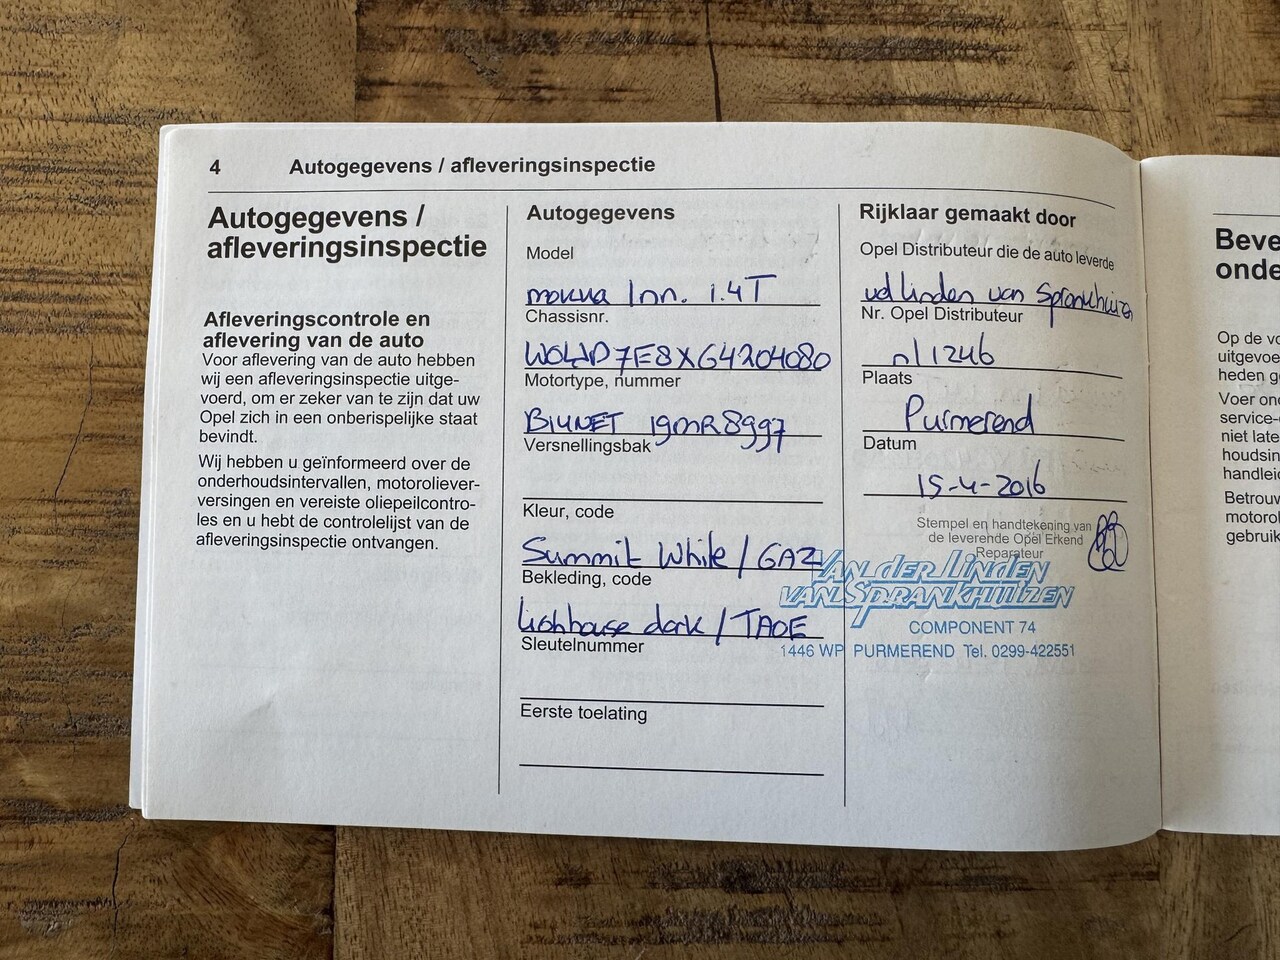 4 Autogegevens / afleveringsinspectie
Autogegevens /
afleveringsinspectie
Afleveringscontrole en
aflevering van de auto
Voor aflevering van de auto hebben
wij een afleveringsinspectie uitge-
voerd, om er zeker van te zijn dat uw
Opel zich in een onberispelijke staat
bevindt.
Wij hebben u geïnformeerd over de
onderhoudsintervallen, motoroliever-
versingen en vereiste oliepeilcontro-
les en u hebt de controlelijst van de
afleveringsinspectie ontvangen.
Autogegevens
Model
mokka Inn. 1.4T
Chassisnr.
W0LJD7E8XG4204080
Motortype, nummer
B14NET 19MR8997
Versnellingsbak
Kleur, code
Summit White / GAZ
Bekleding, code
dark / TAOE
Sleutelnummer
Eerste toelating
Rijklaar gemaakt door
Opel Distributeur die de auto leverde
vd linden van Sprankhuizen
Nr. Opel Distributeur
nl1246
Plaats
Purmerend
Datum
15-4-2016
Stempel en handtekening van
de leverende Opel Erkend
Reparateur
VAN DER LINDEN
VAN SPRANKHUIZEN
COMPONENT 74
1446 WP PURMEREND Tel. 0299-422551
Beve
onde
Op de vo
uitgevoe
heden ge
Voer ond
service-
niet late
houdsin
handleid
Betrouw
motorol
gebruik